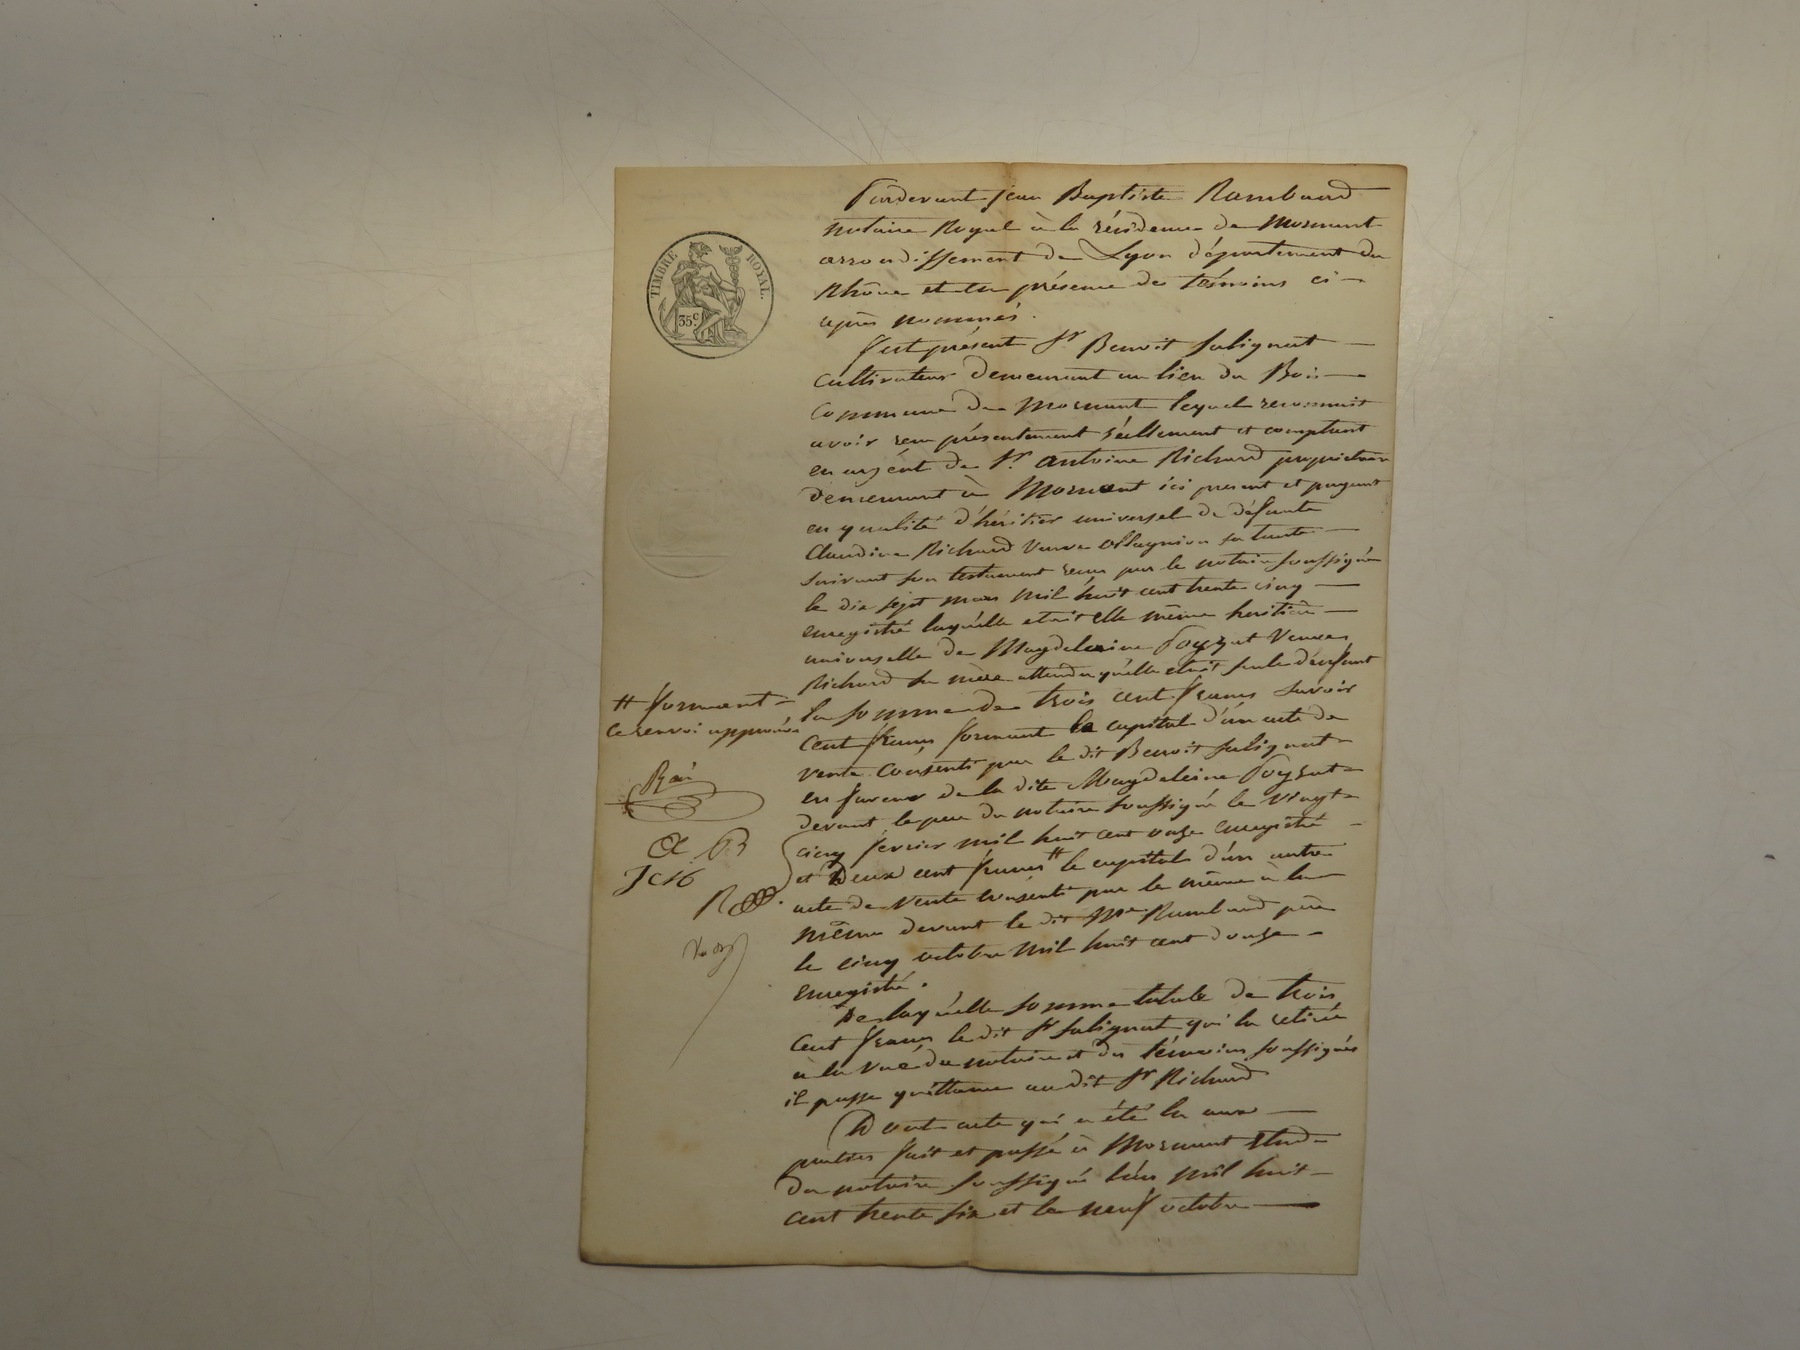 TIMBRE ROYAL.
35c
Pardevant Jean Baptiste Rambaud
notaire Royal à la résidence de Mornant
arrondissement de Lyon département du
Rhône et en présence des témoins ci-
après nommés.
fut présent Sr Benoit Salignat
cultivateur demeurant au lieu du Bois
commune de Mornant lequel reconnait
avoir reçu présentement réellement et comptant
en argent de Sr. antoine Richard propriétaire
demeurant à Mornant ici present et payant
en qualité d'héritier universel de défunte
Claudine Richard veuve ollagnier sa tante
suivant son testament reçu par le notaire soussigné
le dix sept mars mil huit cent trente cinq
enregistré laquelle etait elle même heritière
universelle de Magdeleine Poyzat veuve
Richard sa mère attendu qu'elle etait seule
la somme de trois cent francs savoir
cent francs formant le capital d'un acte de
vente consenti par le dit Benoit Salignat
en faveur de la dite Magdeleine Poyzat
devant le père du notaire soussigné le vingt
cinq fevrier mil huit cent onze enregistré
et Deux cent francs # le capital d'un autre
acte de vente consenti par le même à la
même devant le dit Me Rambaud père
le cinq octobre mil huit cent douze
enregistré.
De laquelle somme totale de trois
cent francs le dit Sr Salignat qui la retirée
à la vue du notaire et des témoins soussignés
il passe quittance au dit Sr Richard
Dont acte qui a été lu aux
parties fait et passé à Mornant Etude
du notaire soussigné l'an mil huit
cent trente six et le neuf octobre
# formant
ce renvoi approuvé